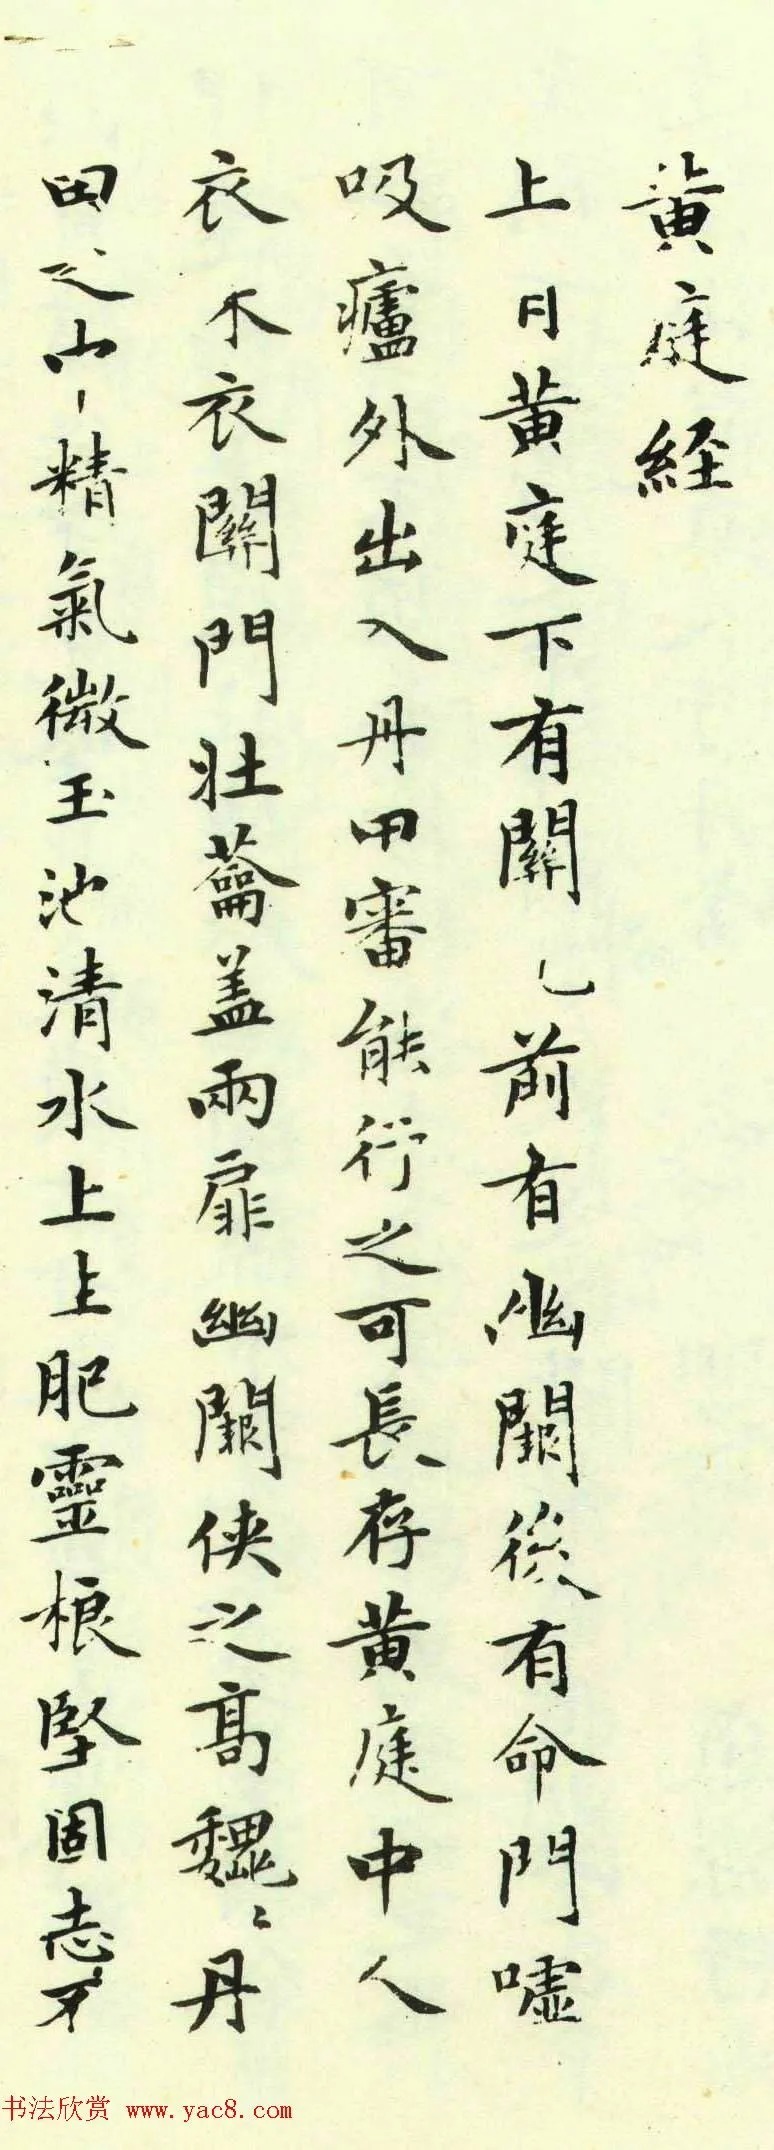 黃庭経
上日黄庭下有關前有幽闕後有命門噓
吸廬外出入丹田審能行之可長存黄庭中人
衣衣關門壯蘥盖兩扉幽闕俠之高魏〻丹
田之精氣微玉池清水上上肥靈根堅固志不
书法欣赏 www.yac8.com